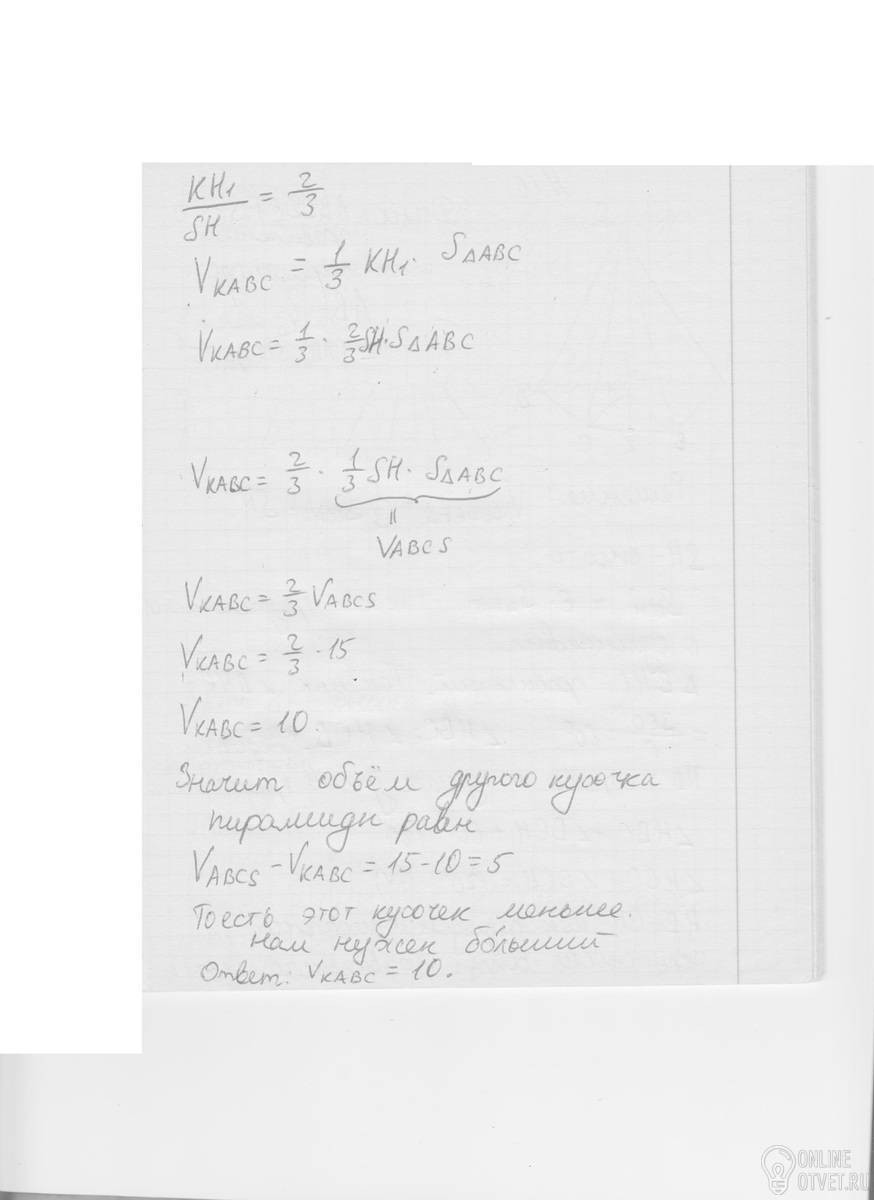 KH₁/SH = 2/3
V_KABC = 1/3 KH₁ · S△ABC
V_KABC = 1/3 · 2/3 SH · S△ABC
V_KABC = 2/3 · 1/3 SH · S△ABC
=
V_ABCS
V_KABC = 2/3 V_ABCS
V_KABC = 2/3 · 15
V_KABC = 10.
Значит объём другого кусочка
пирамиды равен
V_ABCS - V_KABC = 15 - 10 = 5
Тоесть этот кусочек меньше.
нам нужен бо́льший
Ответ: V_KABC = 10.
ONLINE
OTVET.RU